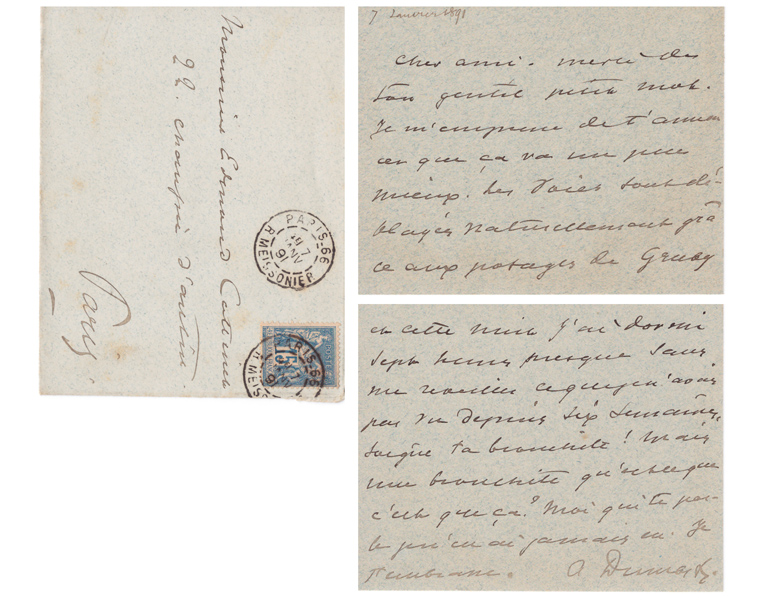 Monsieur Edmond
22. chaussée d'antin
Paris
PARIS-66
7
JANV
91
R MEISSONIER
15
PARIS-66
R MEISSONIER
7 Janvier 1891
Cher ami. merci de
ton gentil petit mot.
Je m'empresse de t'annon
cer que ça va un peu
mieux. Les voies sont dé-
blayées naturellement grâ
ce aux potages de
et cette nuit j'ai dormi
sept heures presque sans
me réveiller ce que je n'avais
pas vu depuis six semaines.
Soigne ta bronchite ! Mais
une bronchite qu'est ce que
c'est que ça ? Moi qui te par-
le je n'en ai jamais eu. Je
t'embrasse. A Dumas f.